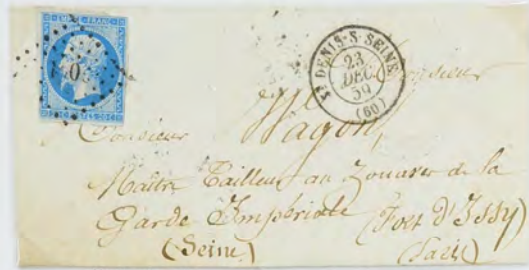 EMPIRE FRANC
ST DENIS-S-SEINE
23
DEC.
59
(60)
Monsieur
Monsieur
Wagon,
Maître Tailleur au Zouaves de la
Garde Impériale (Fort d'Issy)
(Seine)